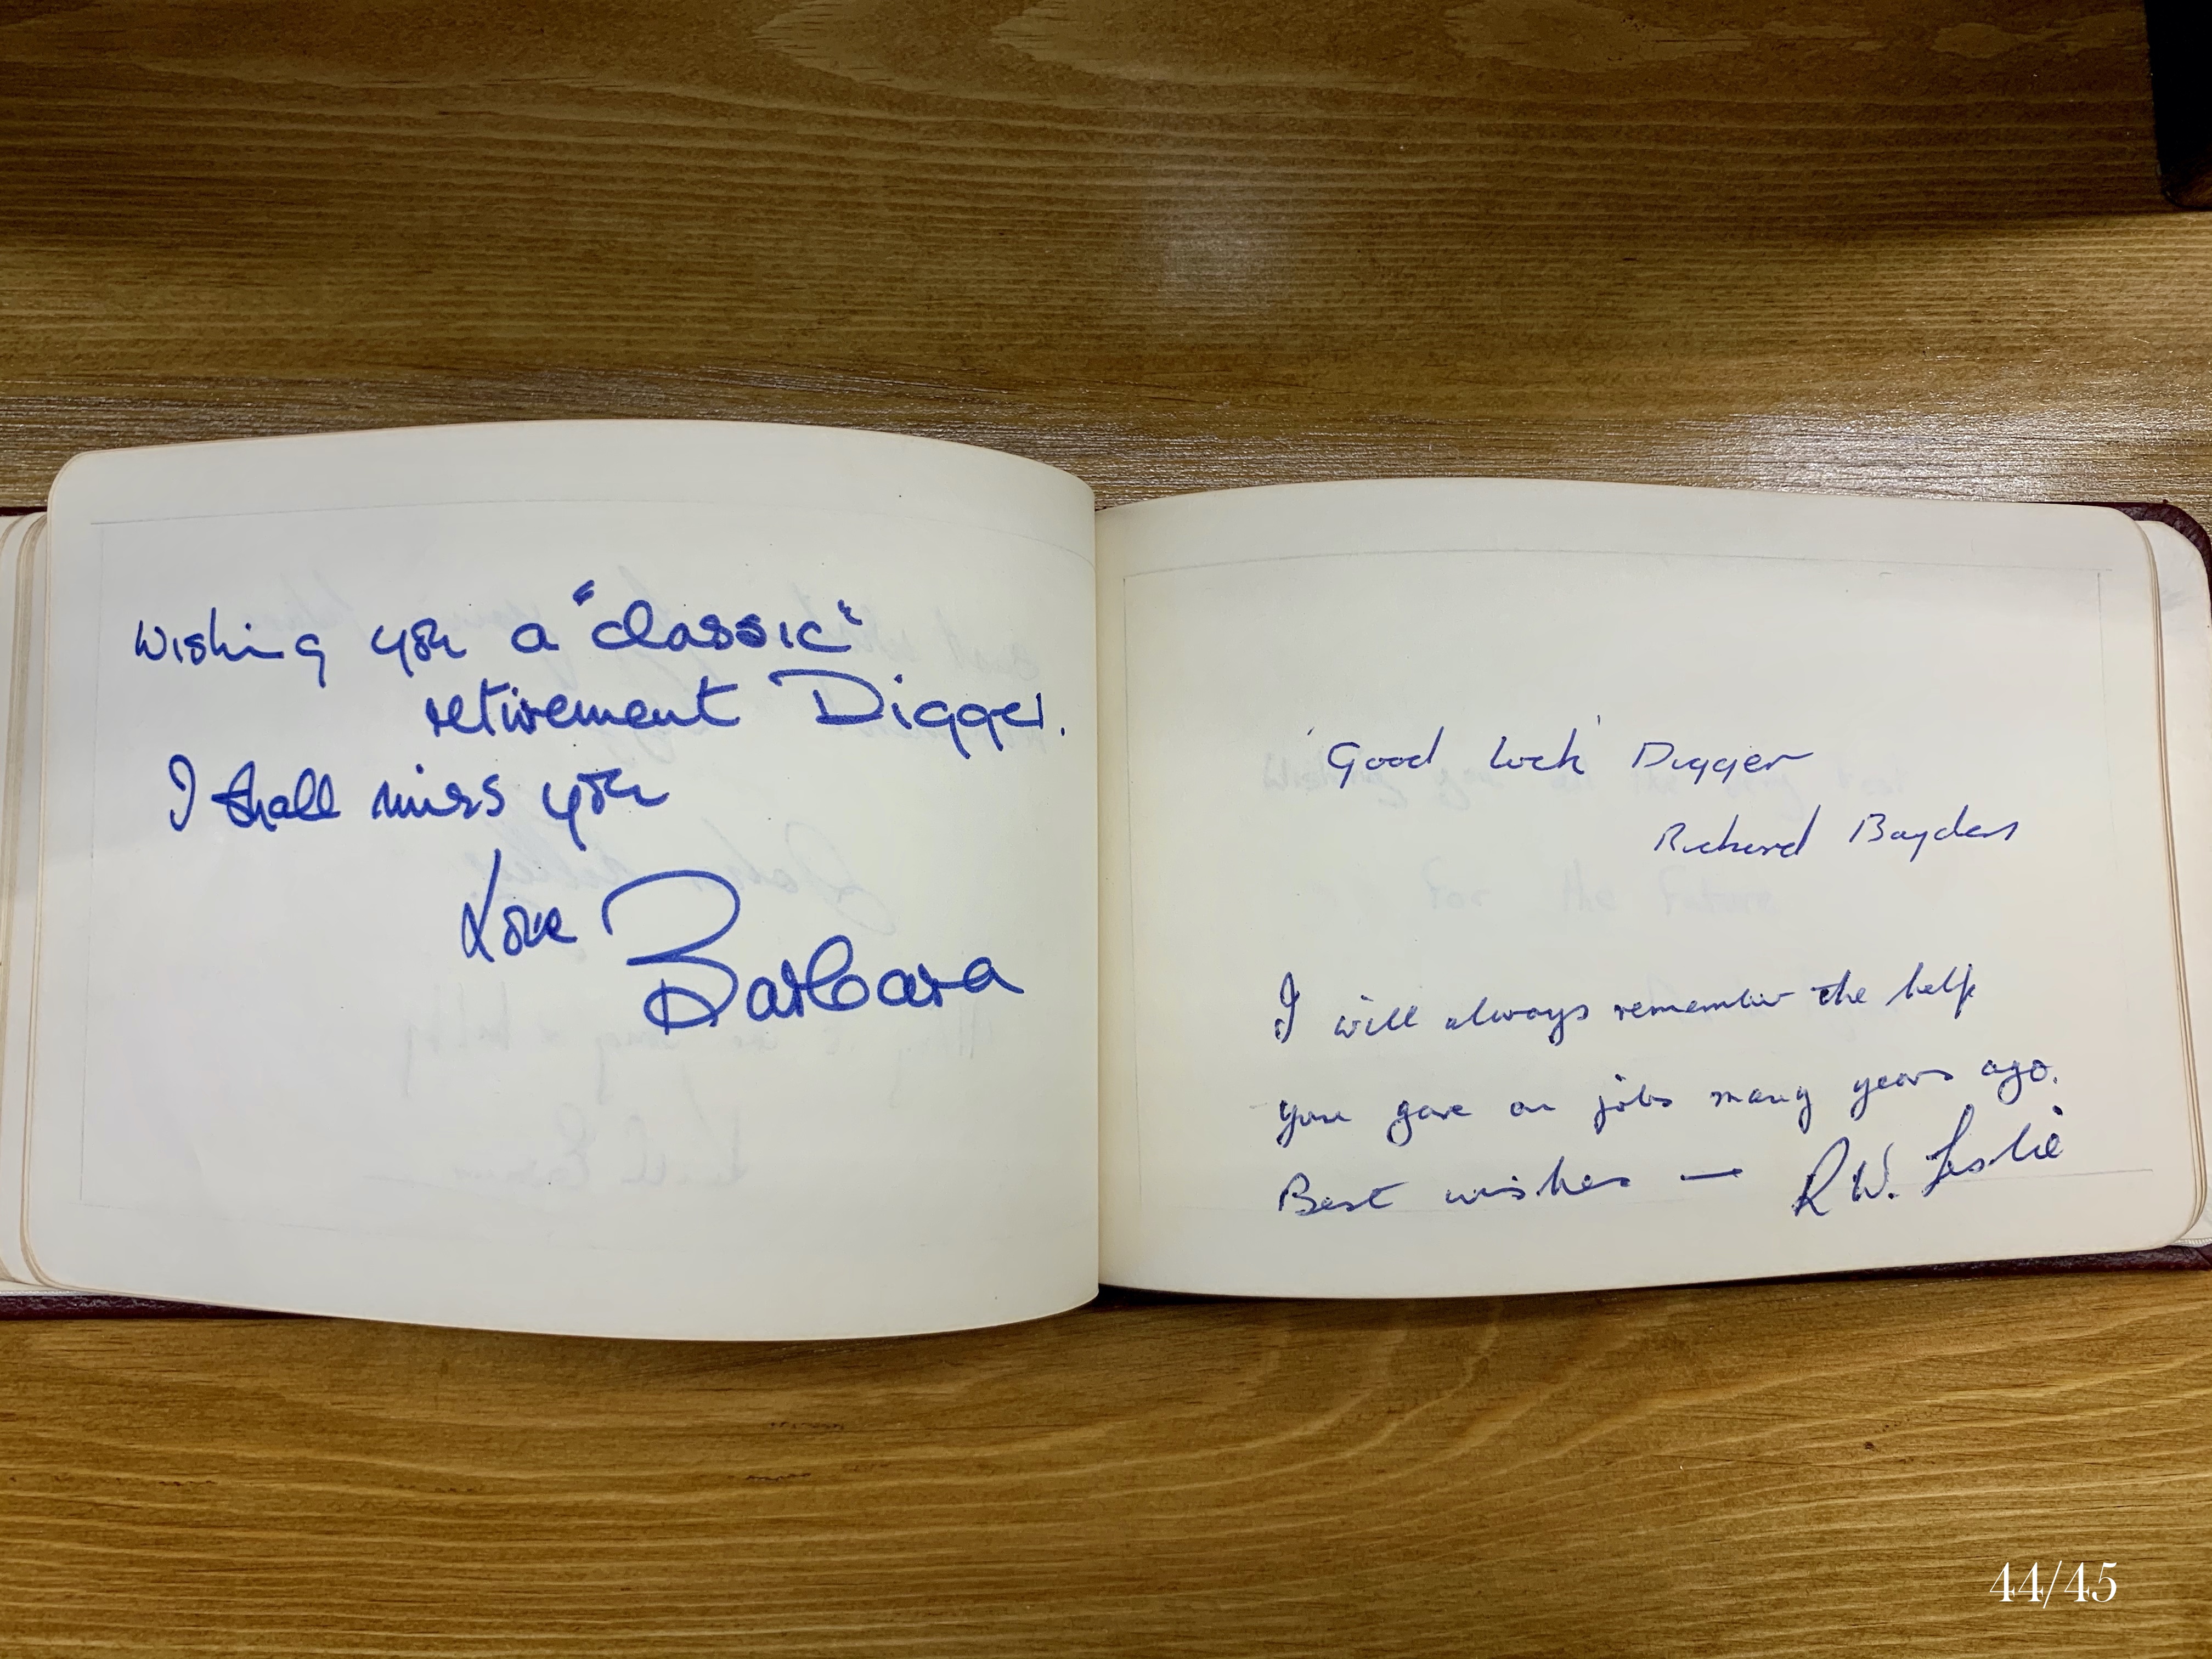 Wishing you a "classic"
retirement Digger.
I shall miss you
Love Barbara
'Good Luck' Digger
Richard
I will always remember the help
you gave on jobs many years ago.
Best wishes — R.W. Leslie
44/45